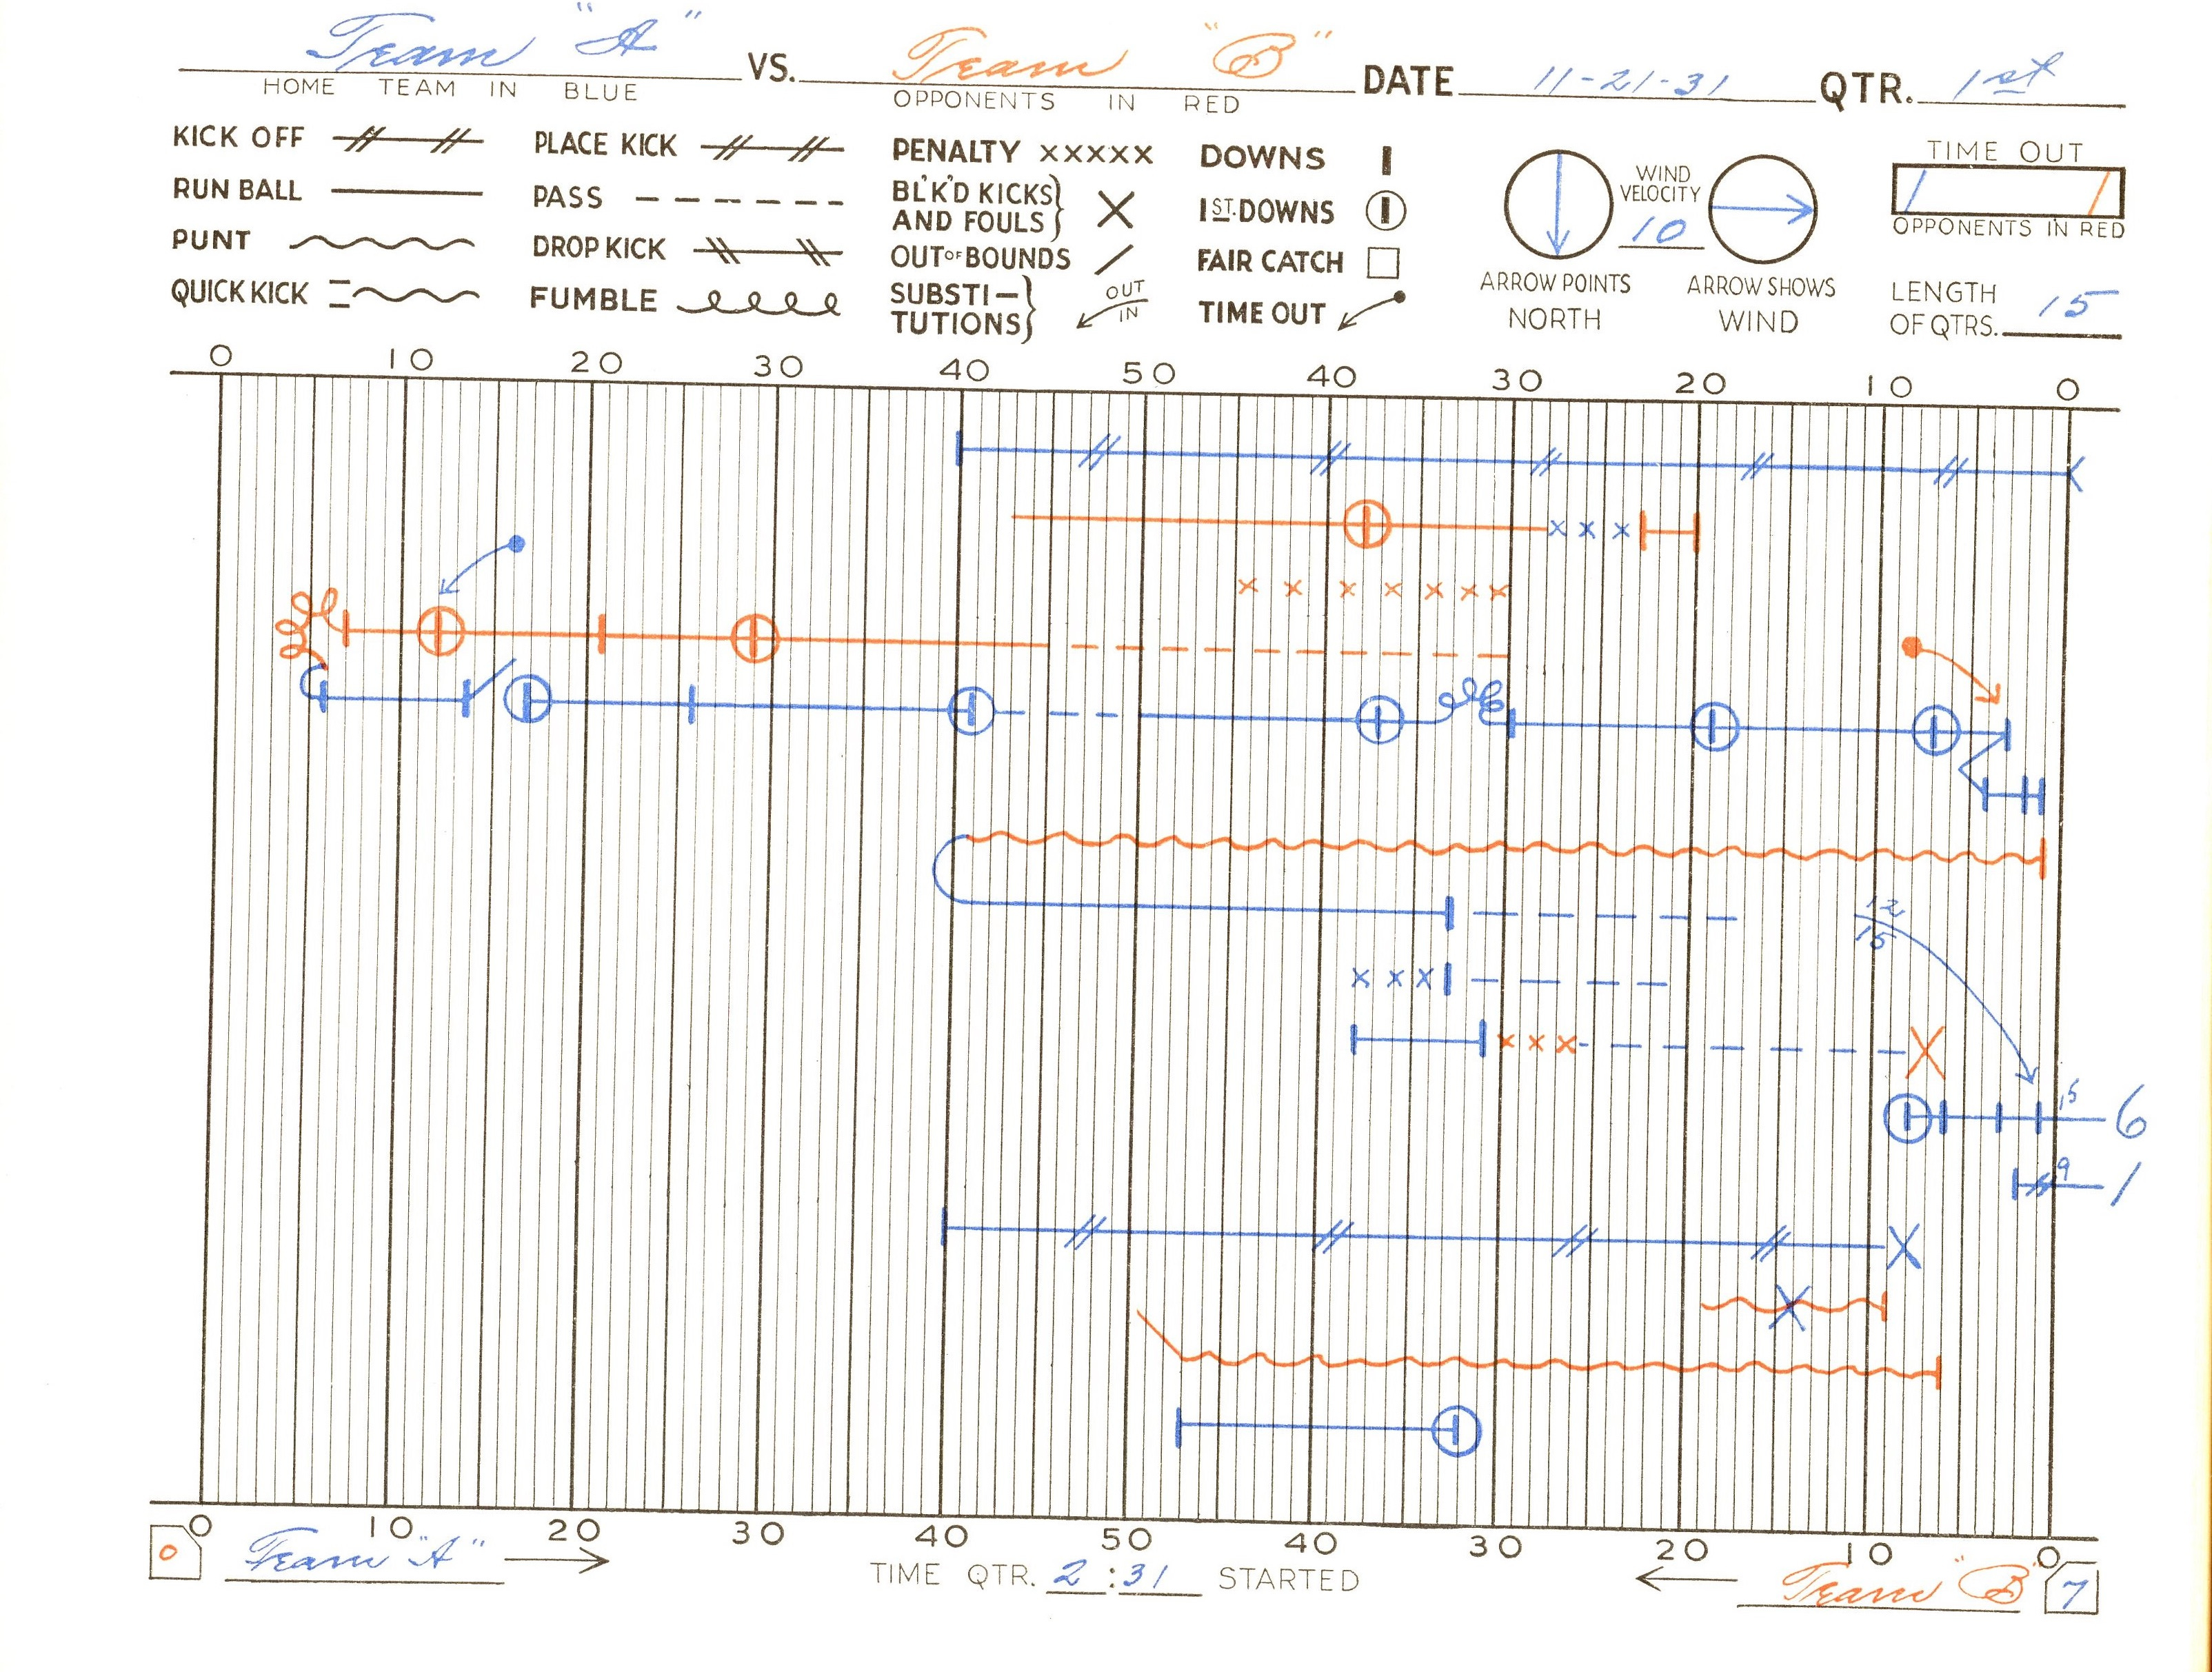 Team "A" VS. Team "B" DATE 11-21-31 QTR. 1st
HOME TEAM IN BLUE OPPONENTS IN RED
KICK OFF PLACE KICK PENALTY xxxxx DOWNS
RUN BALL PASS BL'K'D KICKS AND FOULS 1ST. DOWNS
PUNT DROP KICK OUT OF BOUNDS FAIR CATCH
QUICK KICK FUMBLE SUBSTITUTIONS OUT IN TIME OUT
WIND VELOCITY 10
ARROW POINTS NORTH ARROW SHOWS WIND
TIME OUT
OPPONENTS IN RED
LENGTH OF QTRS. 15
0 10 20 30 40 50 40 30 20 10 0
12
15
15 6
9 1
0 10 20 30 40 50 40 30 20 10 0
0 Team "A" TIME QTR. 2:31 STARTED Team "B" 7